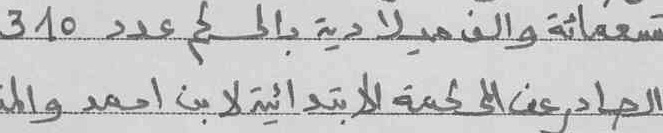 تسعمائة والف ميلادية بالحكم عدد 310
الصادر عن المحكمة الابتدائية لابن احمد والمذ